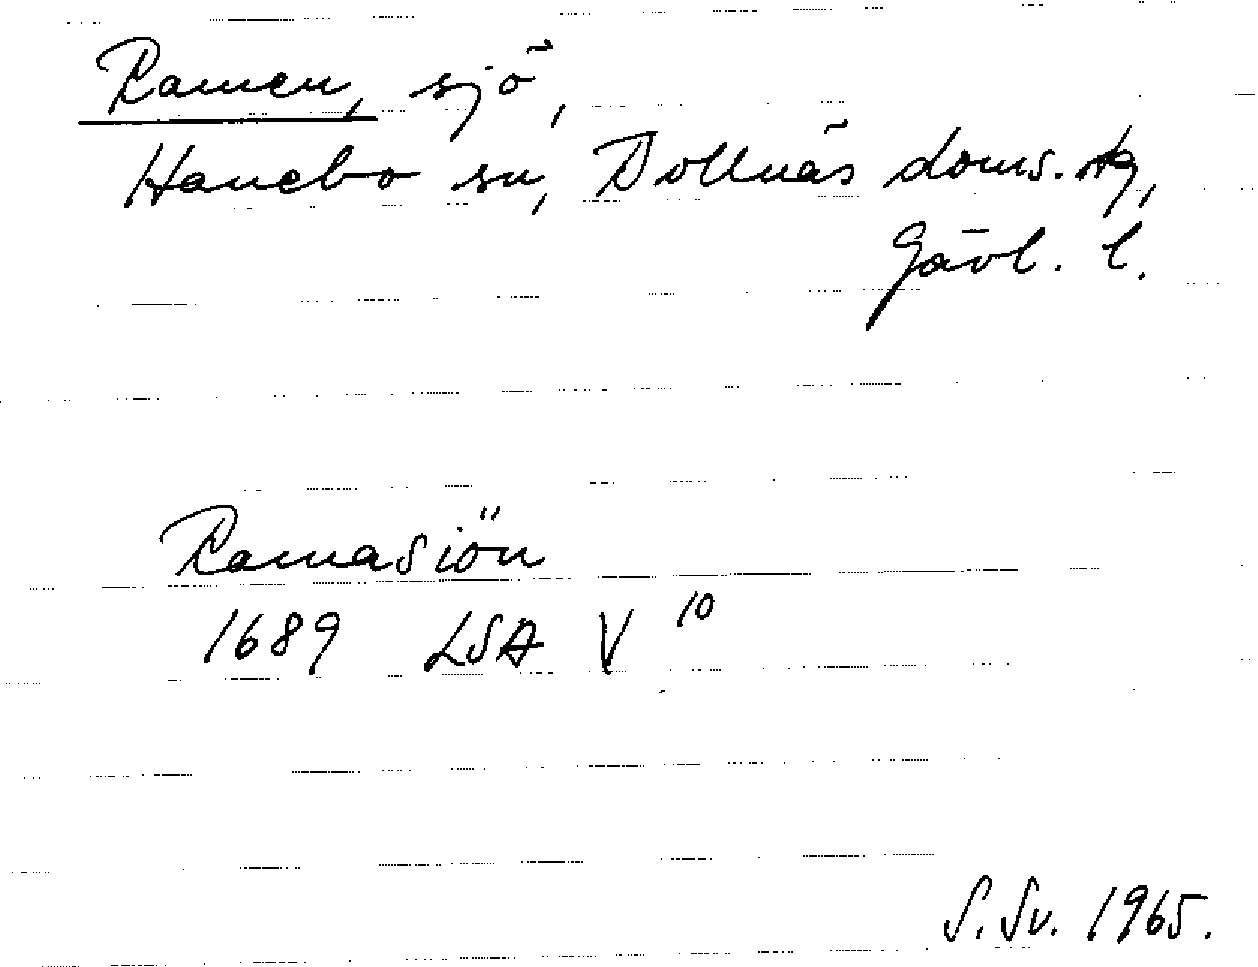 Ramen, sjö,
Hanebo sn, Bollnäs doms. hg,
Gävl. l.
Ramasiön
1689 LSA V 10
S. Sv. 1965.